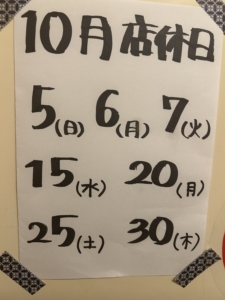 10月店休日
5(日) 6(月) 7(火)
15(水) 20(月)
25(土) 30(木)